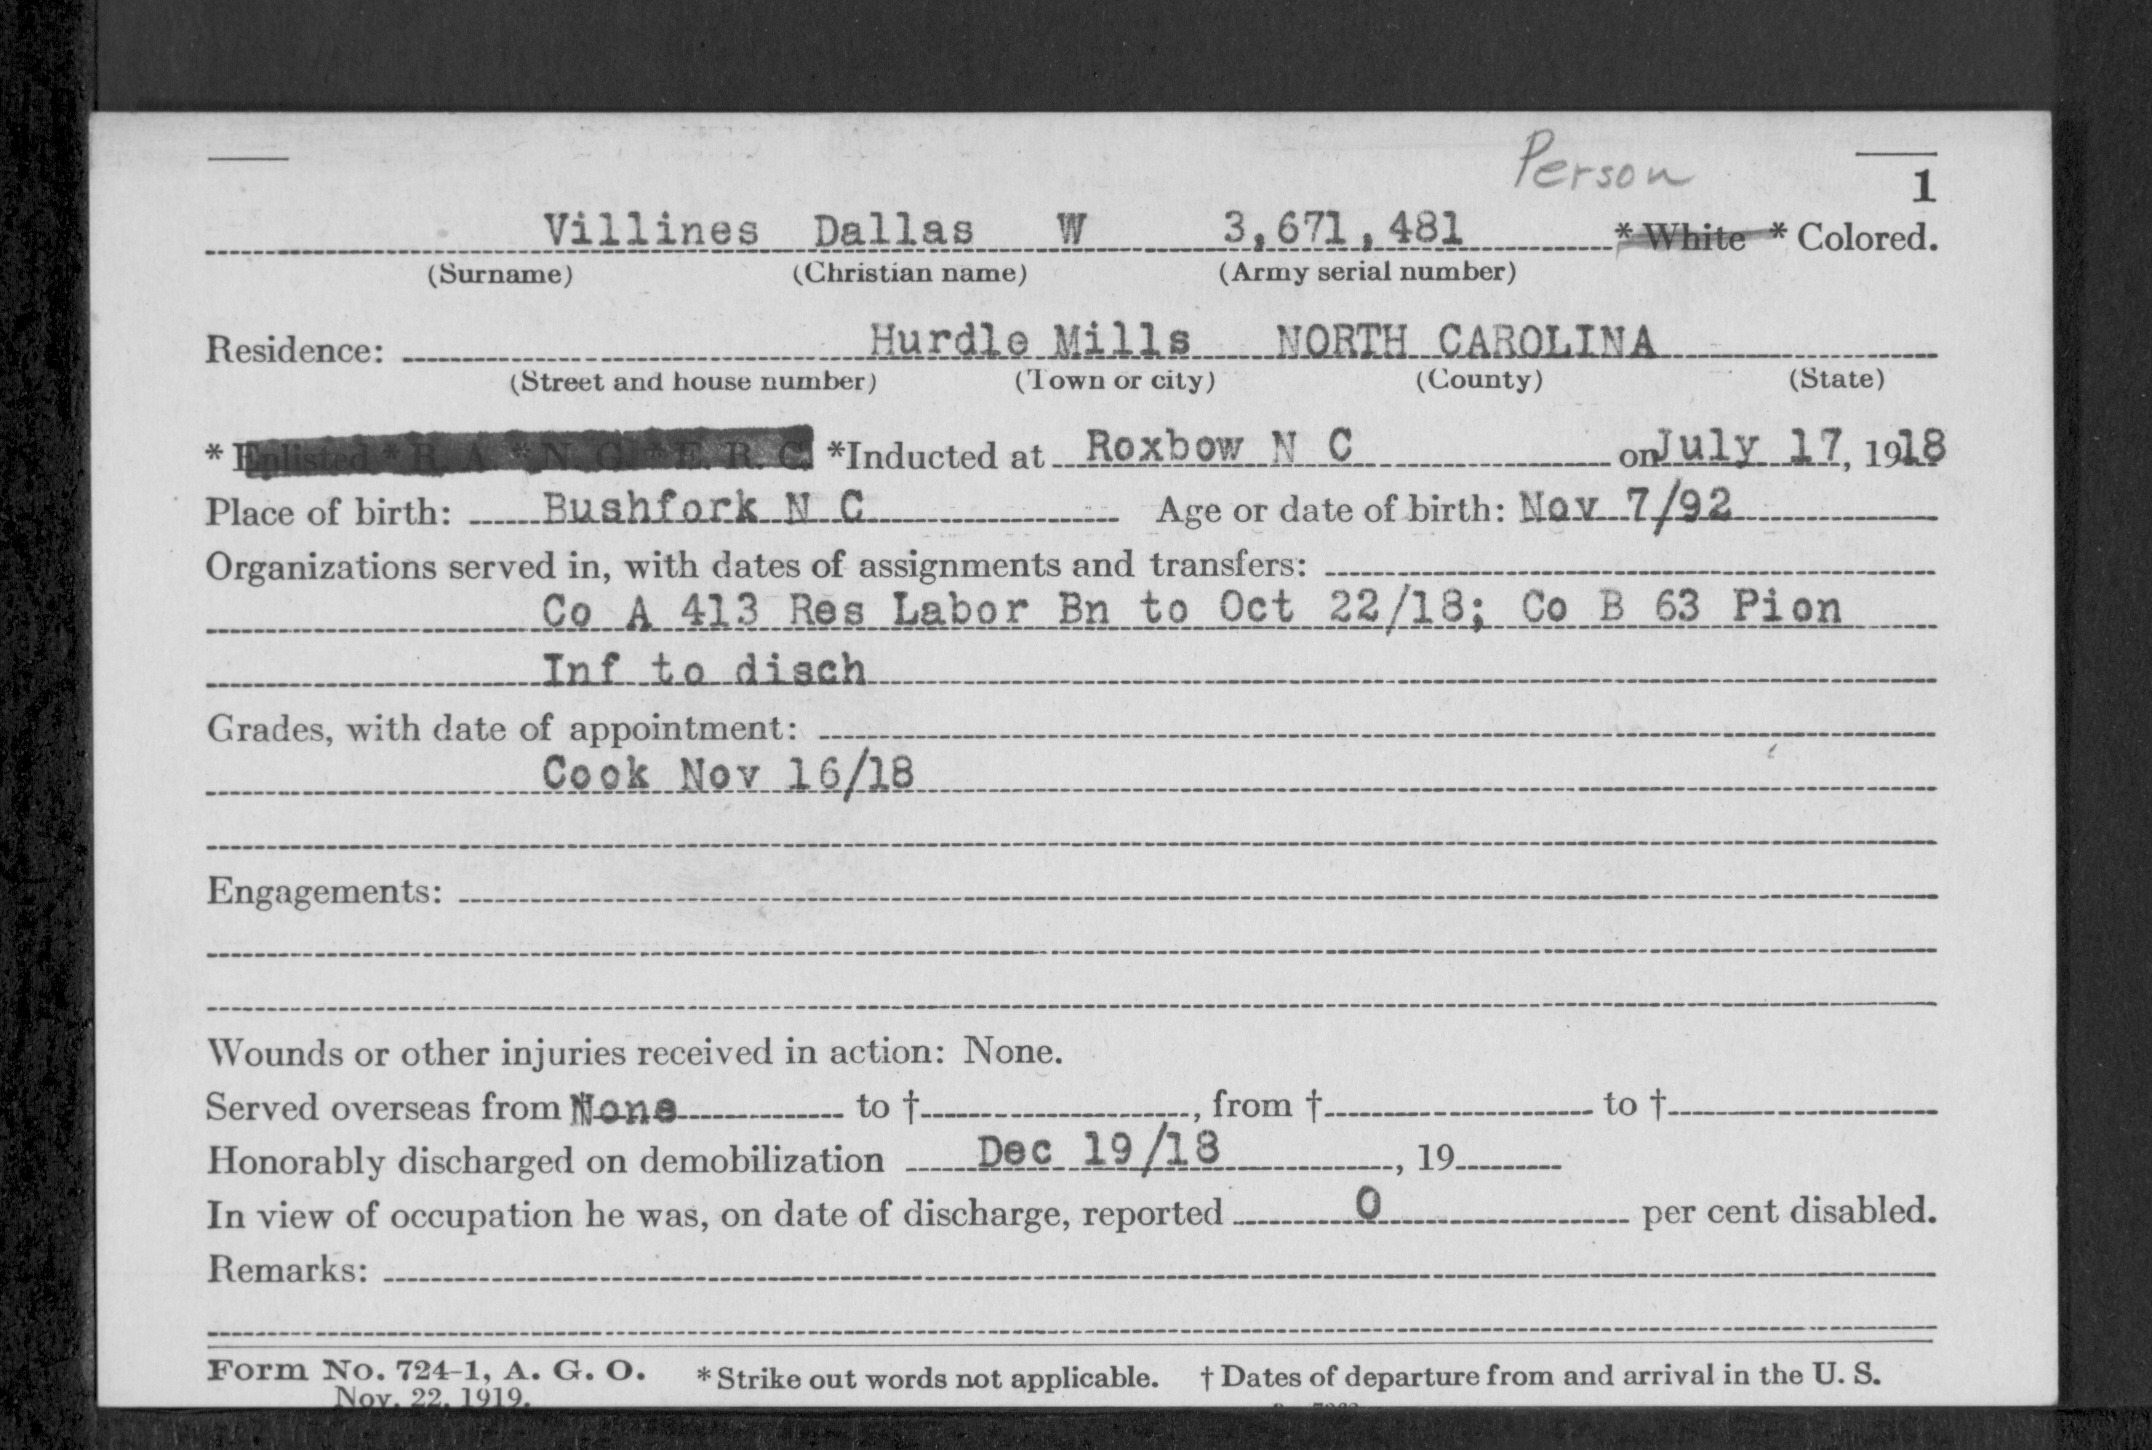 Person
1
Villines Dallas W 3,671,481 * White * Colored.
(Surname) (Christian name) (Army serial number)
Residence: Hurdle Mills NORTH CAROLINA
(Street and house number) (Town or city) (County) (State)
* Enlisted * R. A. * N. G. * E. R. C. *Inducted at Roxbow N C on July 17, 1918
Place of birth: Bushfork N C Age or date of birth: Nov 7/92
Organizations served in, with dates of assignments and transfers:
Co A 413 Res Labor Bn to Oct 22/18; Co B 63 Pion
Inf to disch
Grades, with date of appointment:
Cook Nov 16/18
Engagements:
Wounds or other injuries received in action: None.
Served overseas from None to †, from † to †
Honorably discharged on demobilization Dec 19/18, 19
In view of occupation he was, on date of discharge, reported 0 per cent disabled.
Remarks:
Form No. 724-1, A. G. O. * Strike out words not applicable. † Dates of departure from and arrival in the U. S.
Nov. 22, 1919.